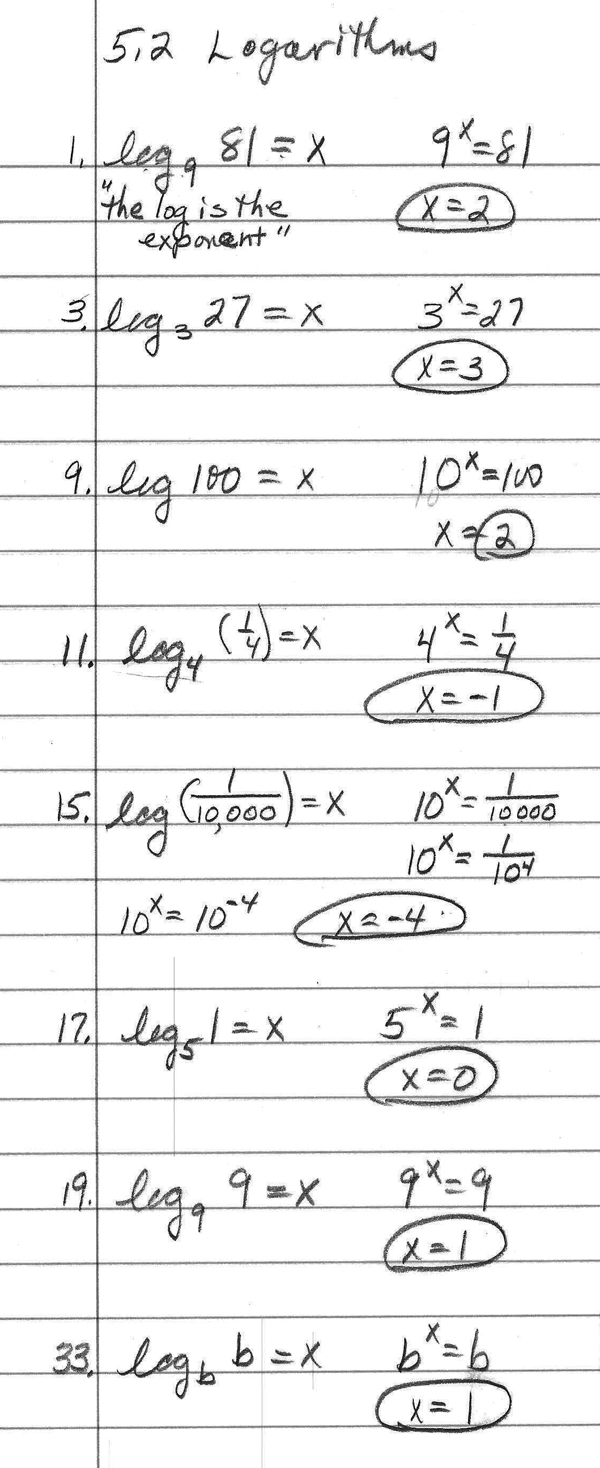 5.2 Logarithms
1. log₉ 81 = x 9ˣ = 81
"the log is the x = 2
exponent"
3. log₃ 27 = x 3ˣ = 27
x = 3
9. log 100 = x 10ˣ = 100
x = 2
11. log₄ (1/4) = x 4ˣ = 1/4
x = -1
15. log (1/10,000) = x 10ˣ = 1/10000
10ˣ = 1/10⁴
10ˣ = 10⁻⁴ x = -4
17. log₅ 1 = x 5ˣ = 1
x = 0
19. log₉ 9 = x 9ˣ = 9
x = 1
33. log_b b = x bˣ = b
x = 1